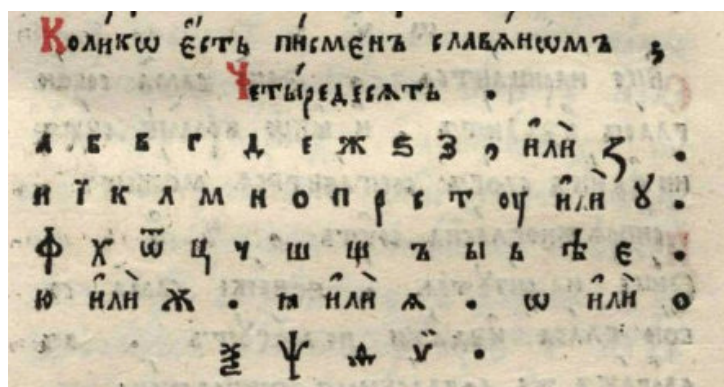 Коликѡ є҆́сть пи́сменъ славѧ́нѡмъ ;
Четы́редесѧть .
а б в г д е ж ѕ з , и҆лѝ ꙁ .
и ї к л м н о п р с т оу и҆лѝ ꙋ .
ф х ѿ ц ч ш щ ъ ы ь ѣ є .
ю и҆лѝ ѫ . ꙗ и҆лѝ ѧ . ѡ и҆лѝ о
ѯ ѱ ѳ ѵ̈ .